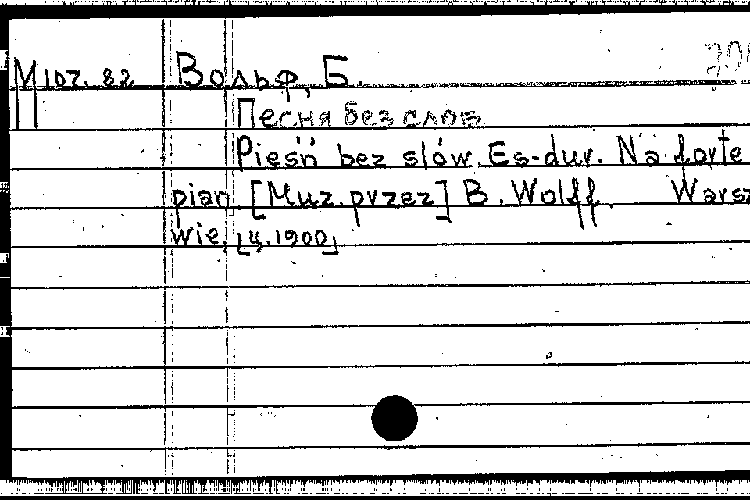 М 107. 82 Вольф, Б.
Песня без слов
Pieśń bez słów. Es-dur. Na forte
pian. [Muz. przez] B. Wolff. Warsz
wie, [ц.1900]